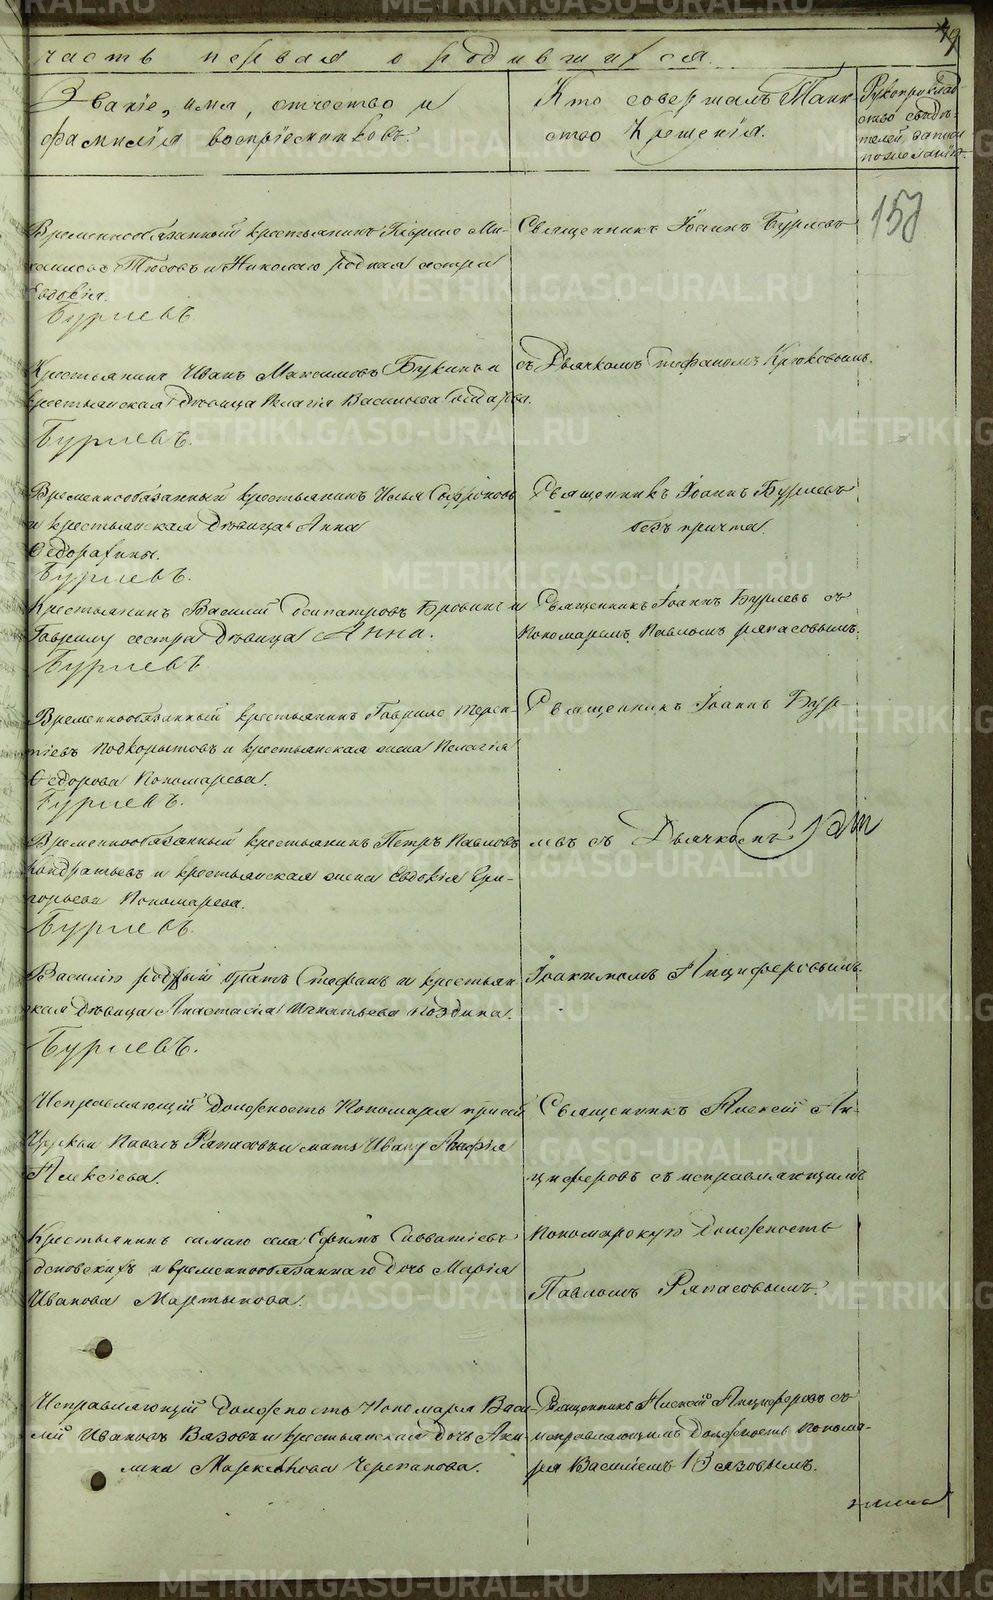 49
часть первая о родившихся.
Званіе, имя, отчество и
фамилія воспріемниковъ.
Кто совершалъ Таин-
ство Крещенія.
Рукоприклад-
ство свидѣ-
телей записи
по желанію.
157
Временнообязанный крестьянинъ Гаврило Ми-
хаиловъ Тюсовъ и Николаю родная сестра
Евдокія.
Бурлевъ
Священникъ Іоаннъ Бурлевъ
Крестьянинъ Иванъ Максимовъ Букинъ и
крестьянская дѣвица Пелагія Васильева
Бурлевъ.
съ Дьячкомъ Стефаномъ Крюковымъ.
Временнообязанный крестьянинъ Илья Софроновъ
и крестьянская дѣвица Анна
Бурлевъ.
Священникъ Іоаннъ Бурлевъ
безъ причта.
Крестьянинъ Василій Осипатровъ Бровинъ и
Гаврилу сестра дѣвица Анна.
Бурлевъ
Священникъ Іоаннъ Бурлевъ съ
Пономаремъ Павломъ Ряпасовымъ.
Временнообязанный крестьянинъ Гаврило Терен-
тіевъ Подкорытовъ и крестьянская жена Пелагія
Ѳедорова Пономарева.
Бурлевъ.
Священникъ Іоаннъ Бур-
Временнообязанный крестьянинъ Петръ Павловъ
Кондратьевъ и крестьянская жена Евдокія Гри-
горьева Пономарева.
Бурлевъ.
левъ съ Дьячкомъ
Василію родный братъ Стефанъ и крестьян-
ская дѣвица Анастасія Игнатьева Поздина.
Бурлевъ.
Іоакимомъ Анциферовымъ.
Исправляющій должность Пономаря при сей
Церкви Павелъ Ряпасовъ и мать Ивану Агафія
Алексіева.
Священникъ Алексій Ан-
циферовъ съ исправляющимъ
Крестьянинъ самаго села Ефимъ Савватіевъ
и временнообязаннаго дочь Марія
Иванова Мартынова.
Пономарскую должность
Павломъ Ряпасовымъ.
Исправляющій должность Пономаря Васи-
лій Ивановъ Вязовъ и крестьянская дочь Аки-
лина Маркелова Черепанова.
Священникъ Алексій Анциферовъ съ
исправляющимъ должность Понома-
ря Василіемъ Вязовымъ.
METRIKI.GASO-URAL.RU